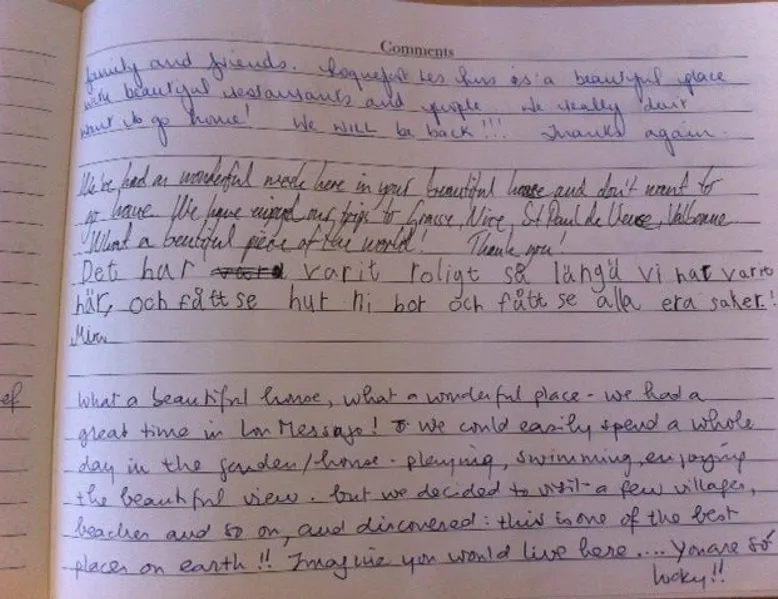 Comments
family and friends. Roquefort Les Pins is a beautiful place
with beautiful restaurants and people. We really don't
want to go home! We WILL be back!!! Thanks again.
We've had a wonderful week here in your beautiful house and don't want to
go home. We have enjoyed our trips to Grasse, Nice, St Paul de Vence, Valbonne
What a beutiful piece of the world! Thank you!
Det har varit roligt så längä vi har varit
här, och fått se hur ni bor och fått se alla era saker!
ef
What a beautiful house, what a wonderful place - we had a
great time in Lou Messago! we could easily spend a whole
day in the garden/house - playing, swimming, enjoying
the beautiful view. but we decided to visit a few villages,
beaches and so on, and discovered: this is one of the best
places on earth!! Imagine you would live here .... You are so
lucky!!